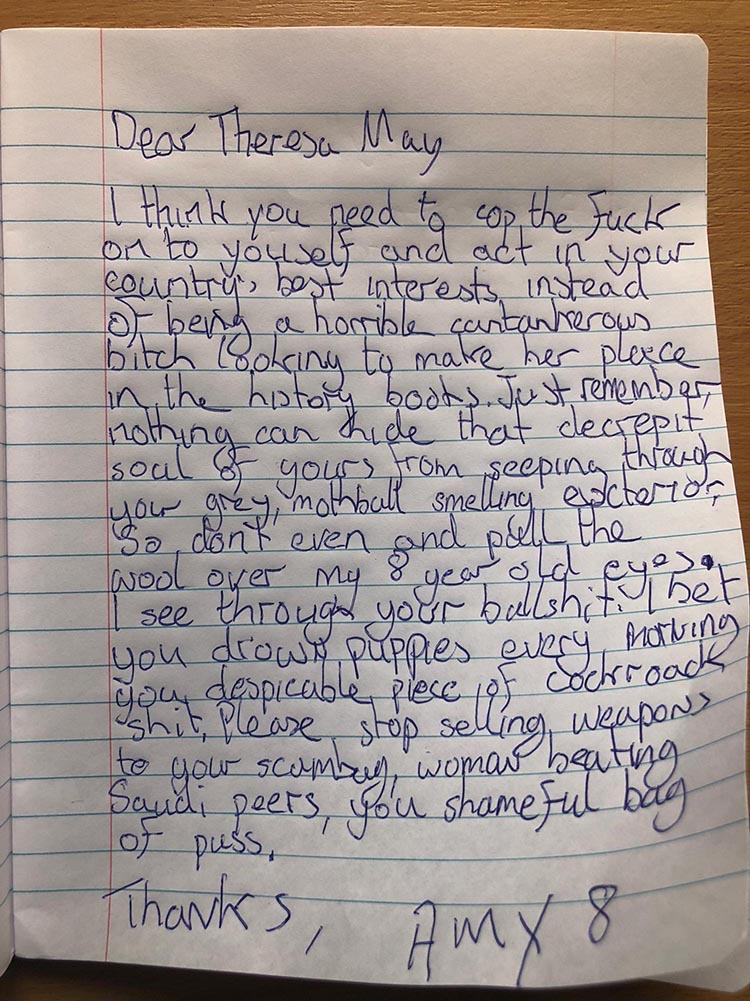 Dear Theresa May
I think you need to cop the fuck
on to youself and act in your
country's best interests, instead
of being a horrible cantankerous
bitch looking to make her plece
in the history books. Just remember,
nothing can hide that decrepit
soul of yours from seeping through
your grey, mothball smelling excterior,
So don't even and pull the
wool over my 8 year old eyes.
I see through your bullshit. I bet
you drown puppies every morning
you despicable piece of cockroack
shit, Please stop selling weapons
to your scumbag, woman beating
Saudi peers, you shameful bag
of puss.
Thanks, Amy 8